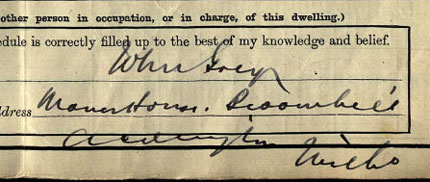 other person in occupation, or in charge, of this dwelling.)
edule is correctly filled up to the best of my knowledge and belief.
John
ddress Manor House. Broomhill
Wilts